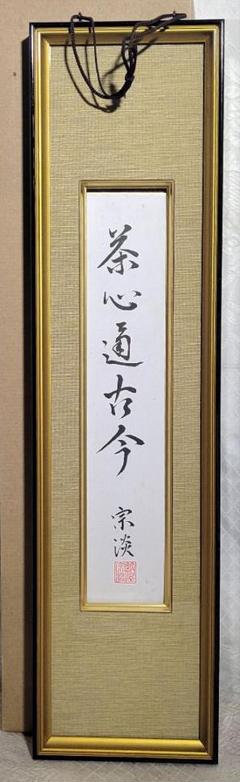 茶心通古今
宗淡